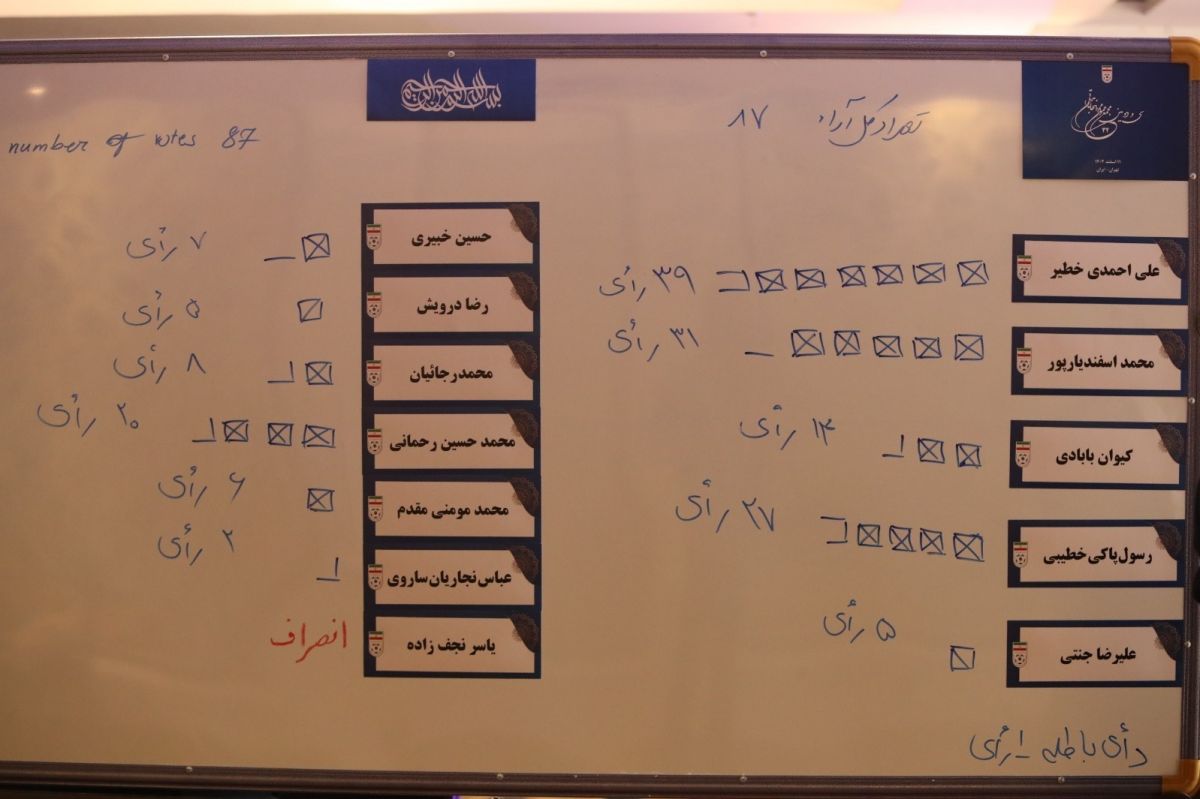 بسم الله الرحمن الرحیم
تعداد کل آراء ۸۷
number of votes 87
۳۲
۱۱ اسفند ۱۴۰۲
تهران - ایران
علی احمدی خطیر ۳۹ رأی
محمد اسفندیارپور ۳۱ رأی
کیوان بابادی ۱۴ رأی
رسول پاکی خطیبی ۲۷ رأی
علیرضا جنتی ۵ رأی
رأی باطله ۱ رأی
حسین خبیری ۷ رأی
رضا درویش ۵ رأی
محمدرجائیان ۸ رأی
محمد حسین رحمانی ۲۰ رأی
محمد مومنی مقدم ۶ رأی
عباس نجاریان ساروی ۲ رأی
یاسر نجف زاده انصراف